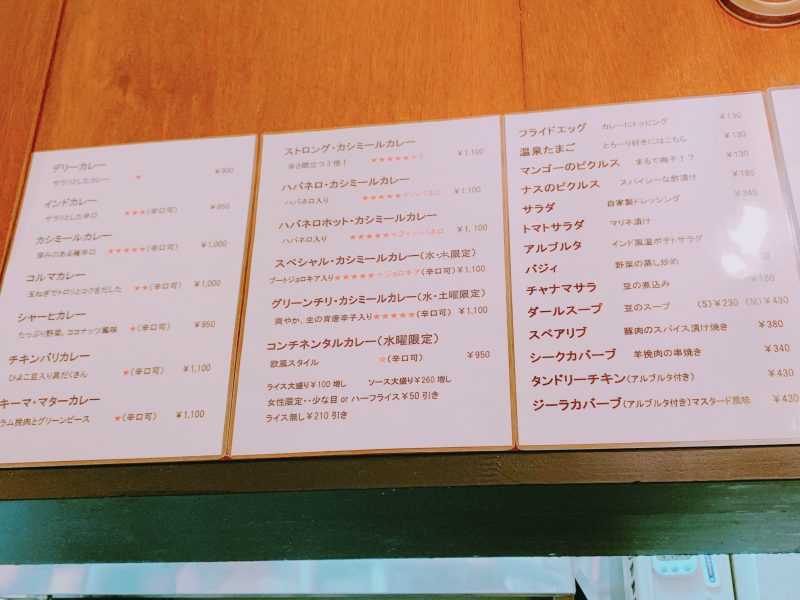 デリーカレー
サラリとしたカレー ★ ¥900
インドカレー
サラリとした辛口 ★★★(辛口可) ¥950
カシミールカレー
深みのある極辛口 ★★★★★(辛口可) ¥1,000
コルマカレー
玉ねぎでトロリとコクをだした ★★(辛口可) ¥1,000
シャーヒカレー
たっぷり野菜。ココナッツ風味 ★(辛口可) ¥950
チキンバリカレー
ひよこ豆入り具だくさん ★(辛口可) ¥1,100
キーマ・マターカレー
ラム挽肉とグリーンピース ★(辛口可) ¥1,100
ストロング・カシミールカレー
辛さ際立つ3倍! ★★★★★×3 ¥1,100
ハバネロ・カシミールカレー
ハバネロ入り ★★★★★+ハバネロ ¥1,100
ハバネロホット・カシミールカレー
ハバネロ入り ★★★★★×2+ハバネロ ¥1,100
スペシャル・カシミールカレー(水・木限定)
ブートジョロキア入り★★★★★+ジョロキア(辛口可)¥1,100
グリーンチリ・カシミールカレー(水・土曜限定)
爽やか、生の青唐辛子入り★★★★★(辛口可) ¥1,100
コンチネンタルカレー(水曜限定)
欧風スタイル ☆(辛口可) ¥950
ライス大盛り¥100増し ソース大盛り¥260増し
女性限定・・少な目 or ハーフライス¥50引き
ライス無し¥210引き
フライドエッグ カレーにトッピング ¥130
温泉たまご とろーり好きにはこちら ¥130
マンゴーのピクルス まるで梅干!? ¥130
ナスのピクルス スパイシーな酢漬け ¥180
サラダ 自家製ドレッシング ¥340
トマトサラダ マリネ漬け
アルブルタ インド風温ポテトサラダ
バジィ 野菜の蒸し炒め
チャナマサラ 豆の煮込み
ダールスープ 豆のスープ (S)¥230 (M)¥430
スペアリブ 豚肉のスパイス漬け焼き ¥380
シークカバーブ 羊挽肉の串焼き ¥340
タンドリーチキン(アルブルタ付き) ¥430
ジーラカバーブ(アルブルタ付き)マスタード風味 ¥430